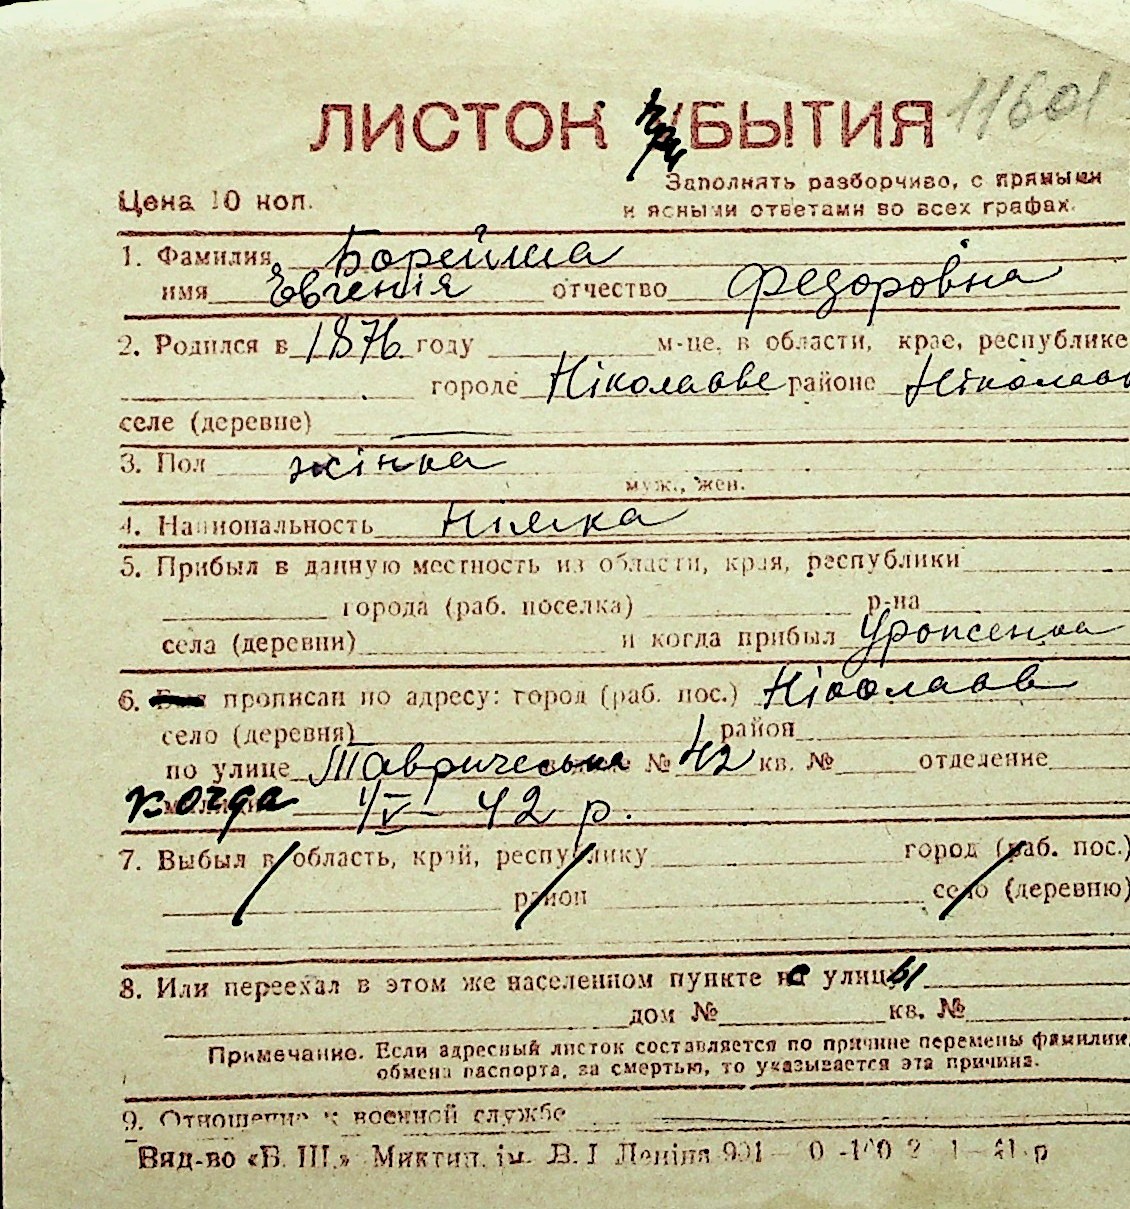 11601
ЛИСТОК при БЫТИЯ
Заполнять разборчиво, с прямыми
Цена 10 коп.
и ясными ответами во всех графах.
1. Фамилия Борейша
имя Евгенія отчество Федоровна
2. Родился в 1876 году м-це, в области, крае, республике
городе Ніколаєве районе
селе (деревне) —
3. Пол жінка
муж., жен.
4. Национальность німка
5. Прибыл в данную местность из области, края, республики
города (раб. поселка) р-на
села (деревни) и когда прибыл Уроженка
6. прописан по адресу: город (раб. пос.) Ніколаев
село (деревня) район
по улице Тавричеська № 42 кв. № отделение
когда 1/V - 42 р.
7. Выбыл в область, край, республику город (раб. пос.)
район село (деревню)
8. Или переехал в этом же населенном пункте с улицы
дом № кв. №
Примечание. Если адресный листок составляется по причине перемены фамилии,
обмена паспорта, за смертью, то указывается эта причина.
9. Отношение к военной службе
Вид-во «Б. Ш.» Миктип. ім. В. І Леніна